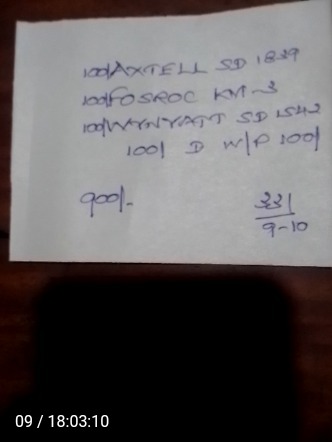 100/AXTELL SD 1839
100/FOSROC KM-3
100/WYNYATT SD 1542
100/ D W/P 100/
900/-
331
9-10
09 / 18:03:10